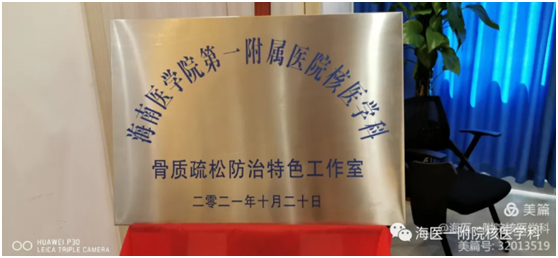 海南医学院第一附属医院核医学科
骨质疏松防治特色工作室
二零二一年十月二十日
HUAWEI P30
LEICA TRIPLE CAMERA
美篇
海医一附院核医学科
美篇号: 32013519